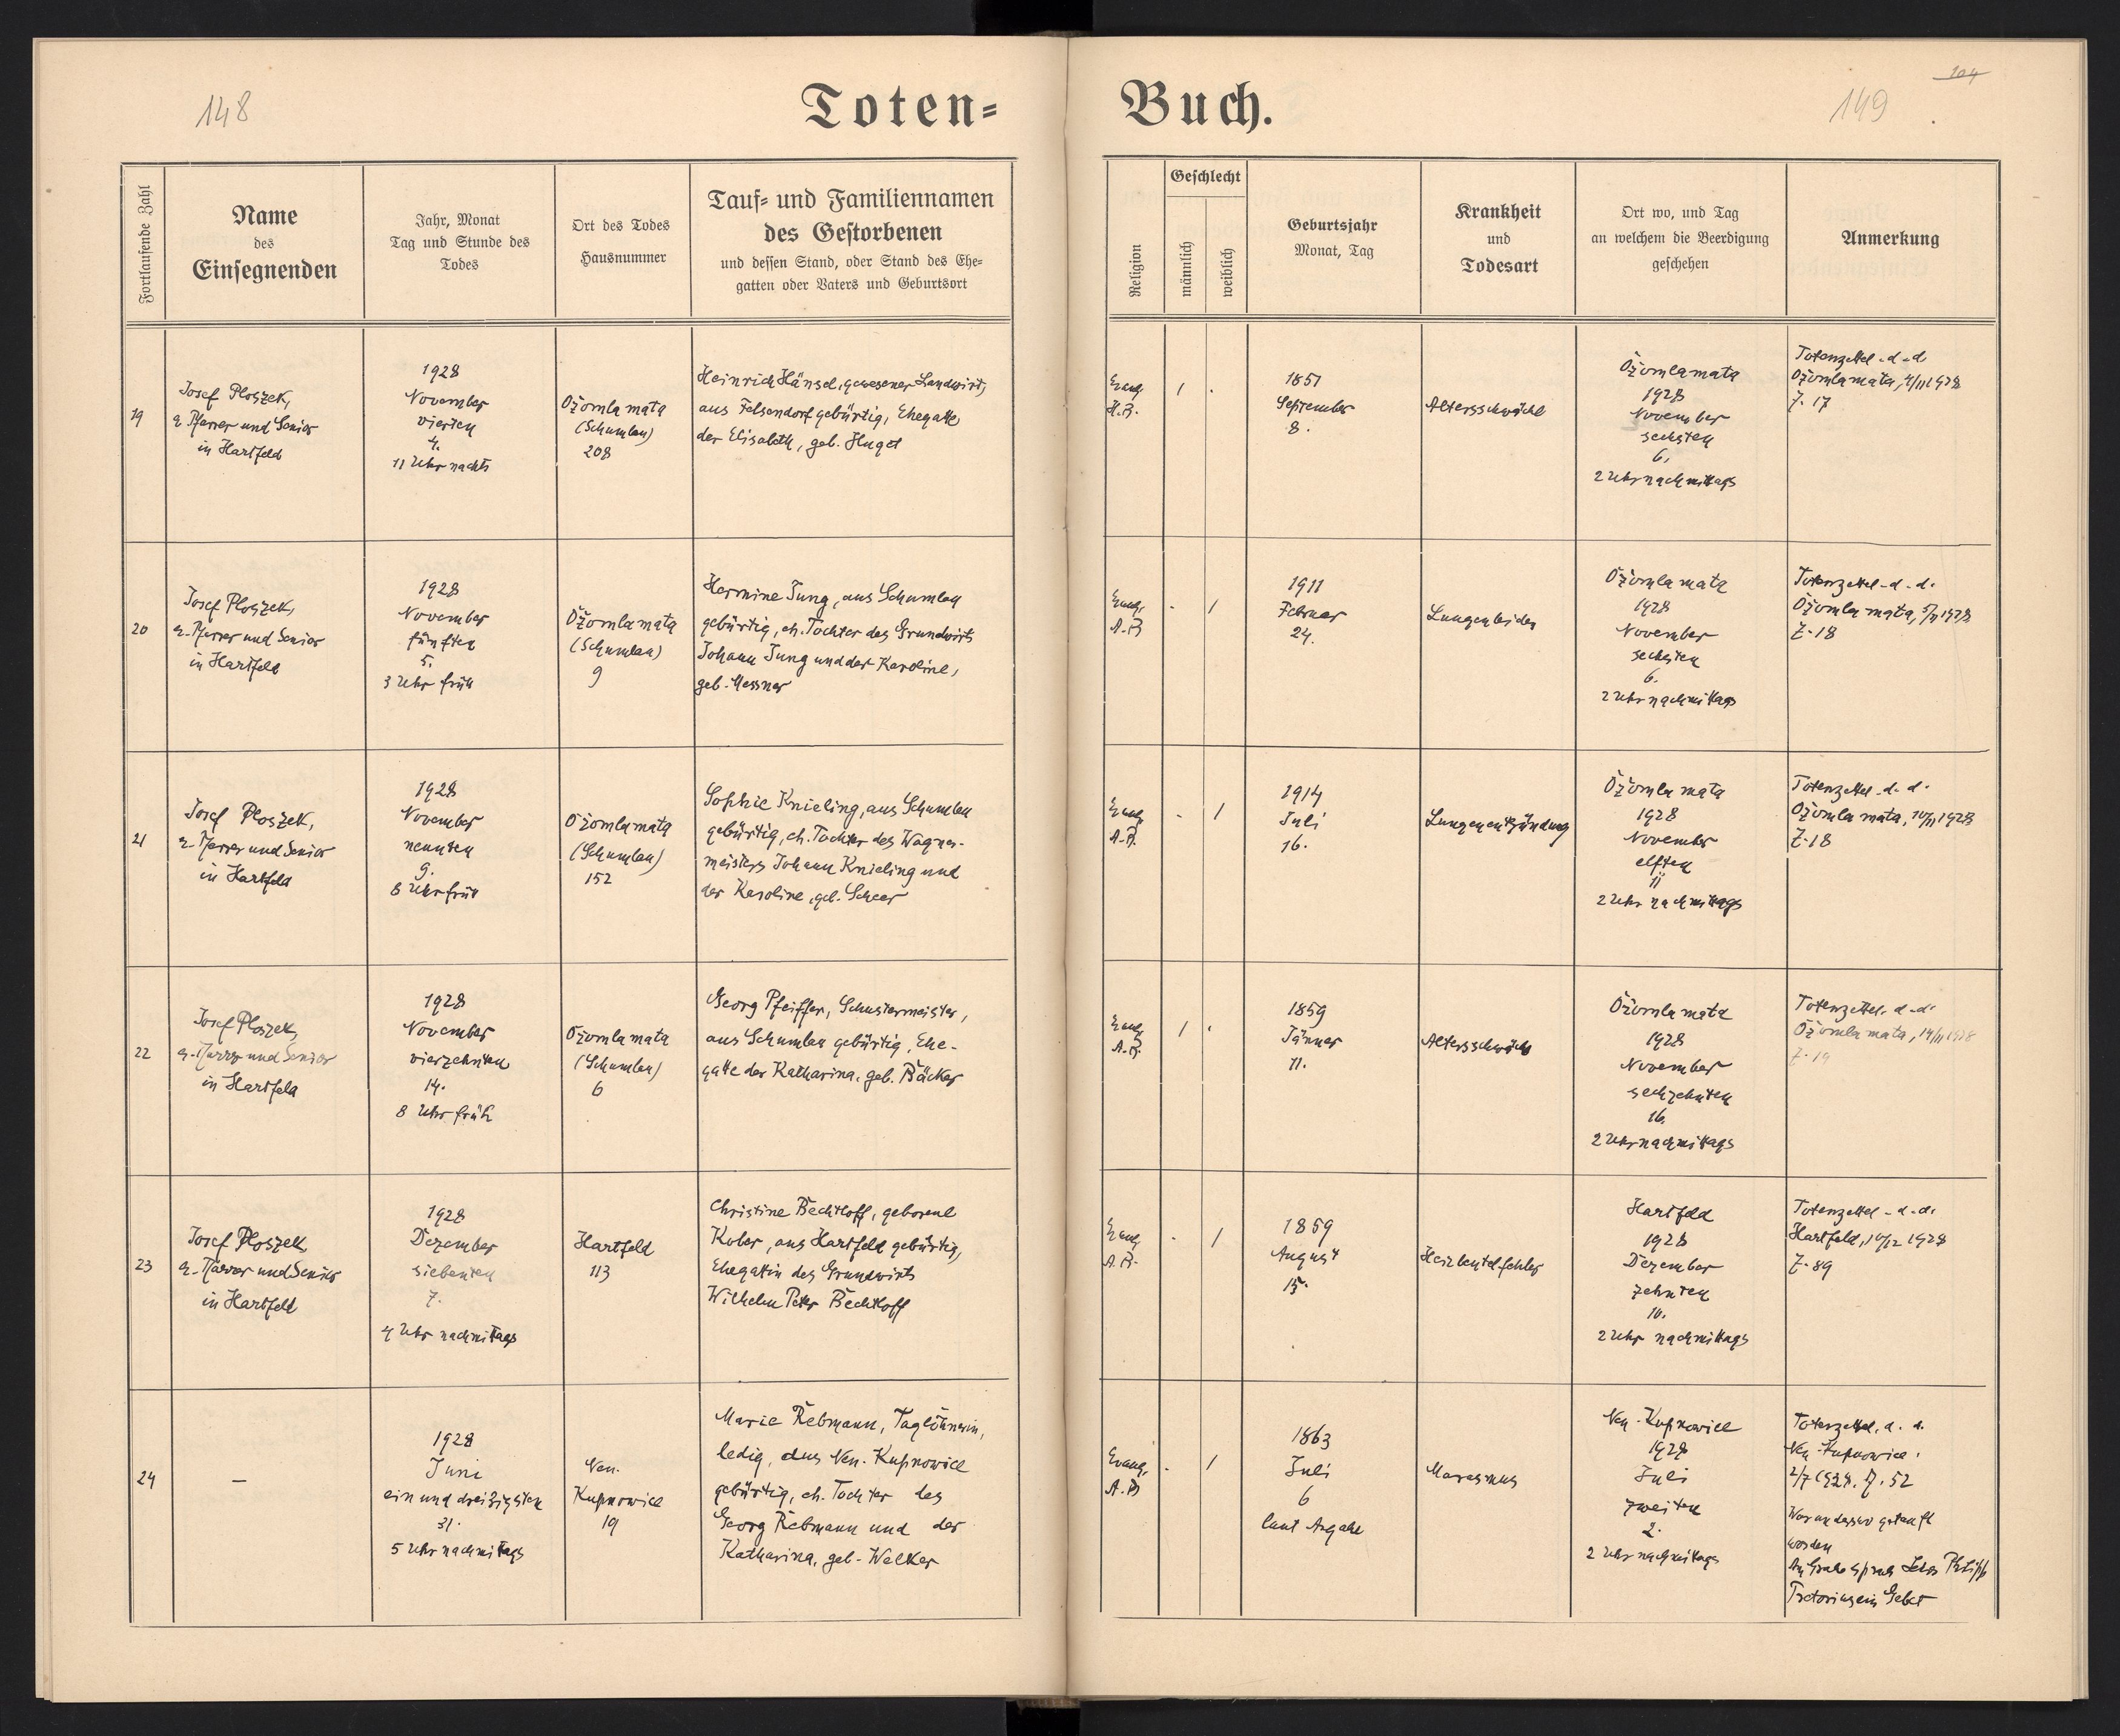 148
Toten=
Fortlaufende Zahl
Name
des
Einsegnenden
Jahr, Monat
Tag und Stunde des
Todes
Ort des Todes
Hausnummer
Tauf= und Familiennamen
des Gestorbenen
und dessen Stand, oder Stand des Ehe=
gatten oder Vaters und Geburtsort
19
Josef Ploszek,
e. Pfarrer und Senior
in Hartfeld
1928
November
vierten
4.
11 Uhr nachts
Ożomla mała
(Schumlau)
208
Heinrich Hänsel, gewesener Landwirt,
aus Felsendorf gebürtig, Ehegatte
der Elisabeth, geb. Huget
20
Josef Ploszek,
e. Pfarrer und Senior
in Hartfeld
1928
November
fünften
5.
3 Uhr früh
Ożomla mała
(Schumlau)
9
Hermine Jung, aus Schumlau
gebürtig, eh. Tochter des Grundwirts
Johann Jung und der Karoline,
geb. Messner
21
Josef Ploszek,
e. Pfarrer und Senior
in Hartfeld
1928
November
neunten
9.
6 Uhr früh
Ożomla mała
(Schumlau)
152
Sophie Knieling, aus Schumlau
gebürtig, eh. Tochter des Wagner-
meisters Johann Knieling und
der Karoline, geb. Scheer
22
Josef Ploszek,
e. Pfarrer und Senior
in Hartfeld
1928
November
vierzehnten
14.
8 Uhr früh
Ożomla mała
(Schumlau)
6
Georg Pfeiffer, Schustermeister,
aus Schumlau gebürtig, Ehe-
gatte der Katharina, geb. Bäcker
23
Josef Ploszek
e. Pfarrer und Senior
in Hartfeld
1928
Dezember
siebenten
7.
4 Uhr nachmittags
Hartfeld
113
Christine Bechtloff, geborene
Kober, aus Hartfeld gebürtig,
Ehegattin des Grundwirts
Wilhelm Peter Bechtloff
24
—
1928
Juni
ein und dreißigsten
31.
5 Uhr nachmittags
Neu-
Kupnowice
19
Marie Rebmann, Taglöhnerin,
ledig, aus Neu-Kupnowice
gebürtig, eh. Tochter des
Georg Rebmann und der
Katharina, geb. Welker
Buch.
104
149
Religion
Geschlecht
männlich
weiblich
Geburtsjahr
Monat, Tag
Krankheit
und
Todesart
Ort wo, und Tag
an welchem die Beerdigung
geschehen
Anmerkung
Evang.
H.B.
1
1851
September
8.
Altersschwäche
Ożomla mała
1928
November
sechsten
6.
2 Uhr nachmittags
Totenzettel d.d.
Ożomla mała, 4/11 1928
Z. 17
Evang.
A.B.
1
1911
Februar
24.
Lungenleiden
Ożomla mała
1928
November
sechsten
6.
2 Uhr nachmittags
Totenzettel d.d.
Ożomla mała, 5/11 1928
Z. 18
Evang.
A.B.
1
1914
Juli
16.
Lungenentzündung
Ożomla mała
1928
November
elften
11
2 Uhr nachmittags
Totenzettel d.d.
Ożomla mała, 10/11 1928
Z. 18
Evang.
A.B.
1
1859
Jänner
11.
Altersschwäche
Ożomla mała
1928
November
sechzehnten
16.
2 Uhr nachmittags
Totenzettel d.d.
Ożomla mała, 14/11 1928
Z. 19
Evang.
A.B.
1
1859
August
15.
Herzbeutelfehler
Hartfeld
1928
Dezember
zehnten
10.
2 Uhr nachmittags
Totenzettel d.d.
Hartfeld, 10/12 1928
Z. 89
Evang.
A.B.
1
1863
Juli
6
laut Angabe
Marasmus
Neu-Kupnowice
1928
Juli
zweiten
2.
2 Uhr nachmittags
Totenzettel, d. d.
Neu-Kupnowice,
2/7 1928. Z. 52
War anderswo getauft
worden
Am Grabe sprach Lehrer Philipp
ein Gebet